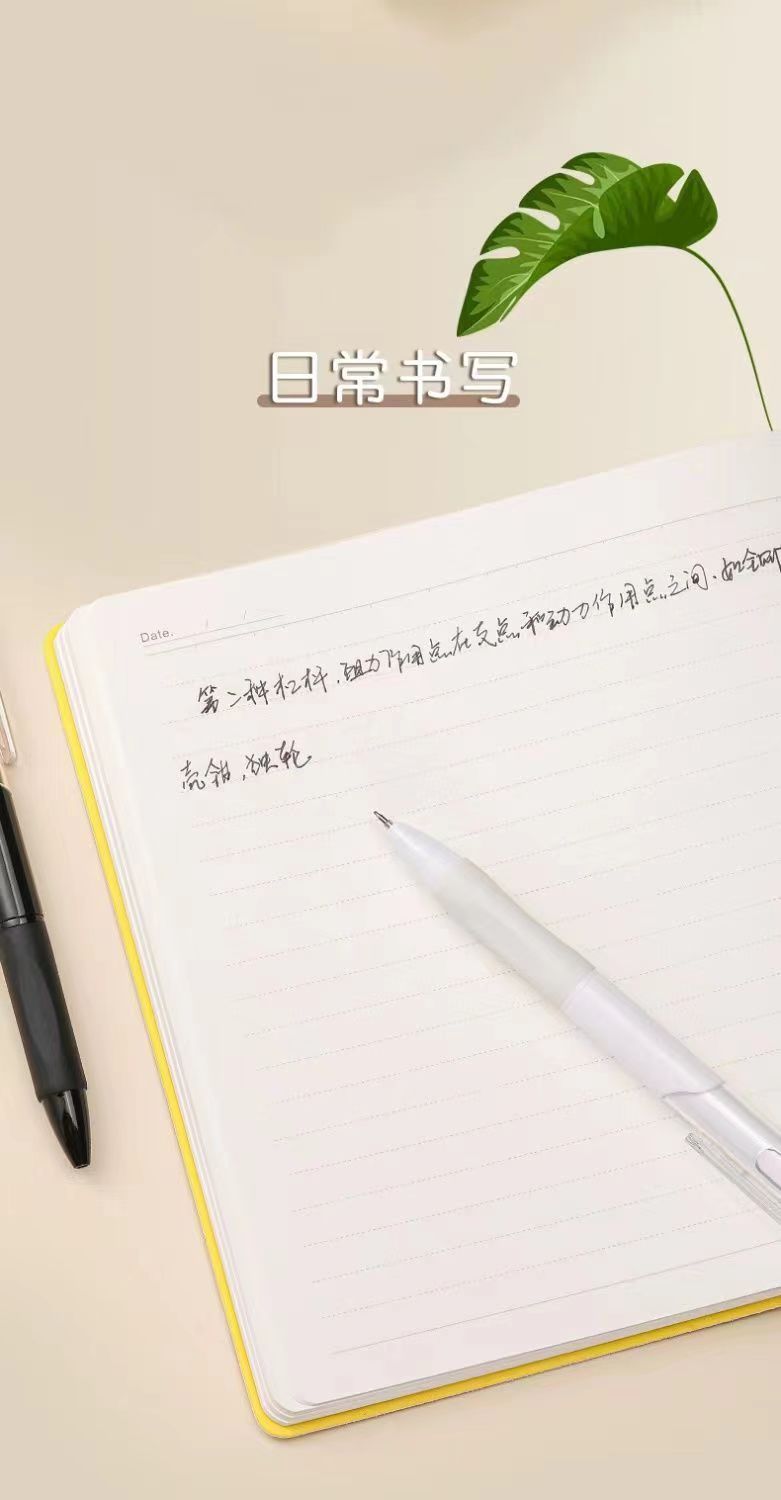 日常书写
Date. / /
第二种杠杆,阻力作用点在支点和动力作用点之间,如
壳钳,独轮